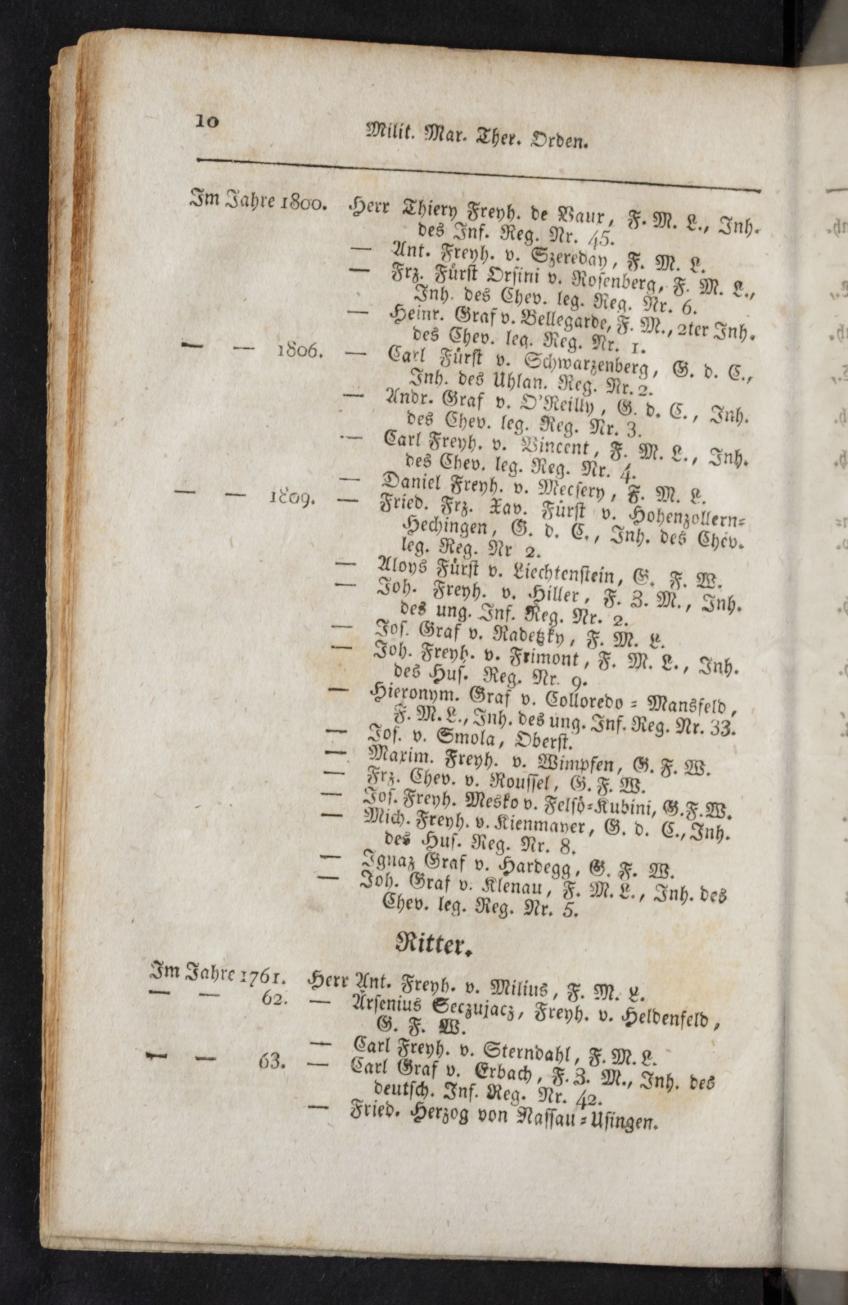 10
Milit. Mar. Ther. Orden.
Im Jahre 1800. Herr Thiery Freyh. de Vaux, F. M. L., Inh.
des Inf. Reg. Nr. 45.
— Ant. Freyh. v. Szereday, F. M. L.
— Frz. Fürst Orsini v. Rosenberg, F. M. L.,
Inh. des Chev. leg. Reg. Nr. 6.
— Heinr. Graf v. Bellegarde, F. M., 2ter Inh.
des Chev. leg. Reg. Nr. 1.
— — 1806. — Carl Fürst v. Schwarzenberg, G. d. C.,
Inh. des Uhlan. Reg. Nr. 2.
— Andr. Graf v. O'Reilly, G. d. C., Inh.
des Chev. leg. Reg. Nr. 3.
— Carl Freyh. v. Vincent, F. M. L., Inh.
des Chev. leg. Reg. Nr. 4.
— Daniel Freyh. v. Mecsery, F. M. L.
— — 1809. — Fried. Frz. Xav. Fürst v. Hohenzollern=
Hechingen, G. d. C., Inh. des Chev.
leg. Reg. Nr 2.
— Aloys Fürst v. Liechtenstein, G. F. W.
— Joh. Freyh. v. Hiller, F. Z. M., Inh.
des ung. Inf. Reg. Nr. 2.
— Jos. Graf v. Radetzky, F. M. L.
— Joh. Freyh. v. Frimont, F. M. L., Inh.
des Hus. Reg. Nr. 9.
— Hieronym. Graf v. Colloredo = Mansfeld,
F. M. L., Inh. des ung. Inf. Reg. Nr. 33.
— Jos. v. Smola, Oberst.
— Maxim. Freyh. v. Wimpfen, G. F. W.
— Frz. Chev. v. Roussel, G. F. W.
— Jos. Freyh. Mesko v. Felsö=Kubini, G. F. W.
— Mich. Freyh. v. Kienmayer, G. d. C., Inh.
des Hus. Reg. Nr. 8.
— Ignaz Graf v. Hardegg, G. F. W.
— Joh. Graf v. Klenau, F. M. L., Inh. des
Chev. leg. Reg. Nr. 5.
Ritter.
Im Jahre 1761. Herr Ant. Freyh. v. Milius, F. M. L.
— — 62. — Arsenius Seczujacz, Freyh. v. Heldenfeld,
G. F. W.
— Carl Freyh. v. Sterndahl, F. M. L.
— — 63. — Carl Graf v. Erbach, F. Z. M., Inh. des
deutsch. Inf. Reg. Nr. 42.
— Fried. Herzog von Nassau=Usingen.